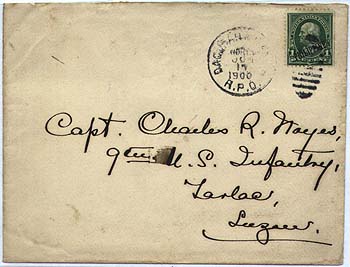 NORTH
15
1900
R.P.O.
1
Capt. Charles R. Noyes,
9th U.S. Infantry,
Tarlac,
Luzon.